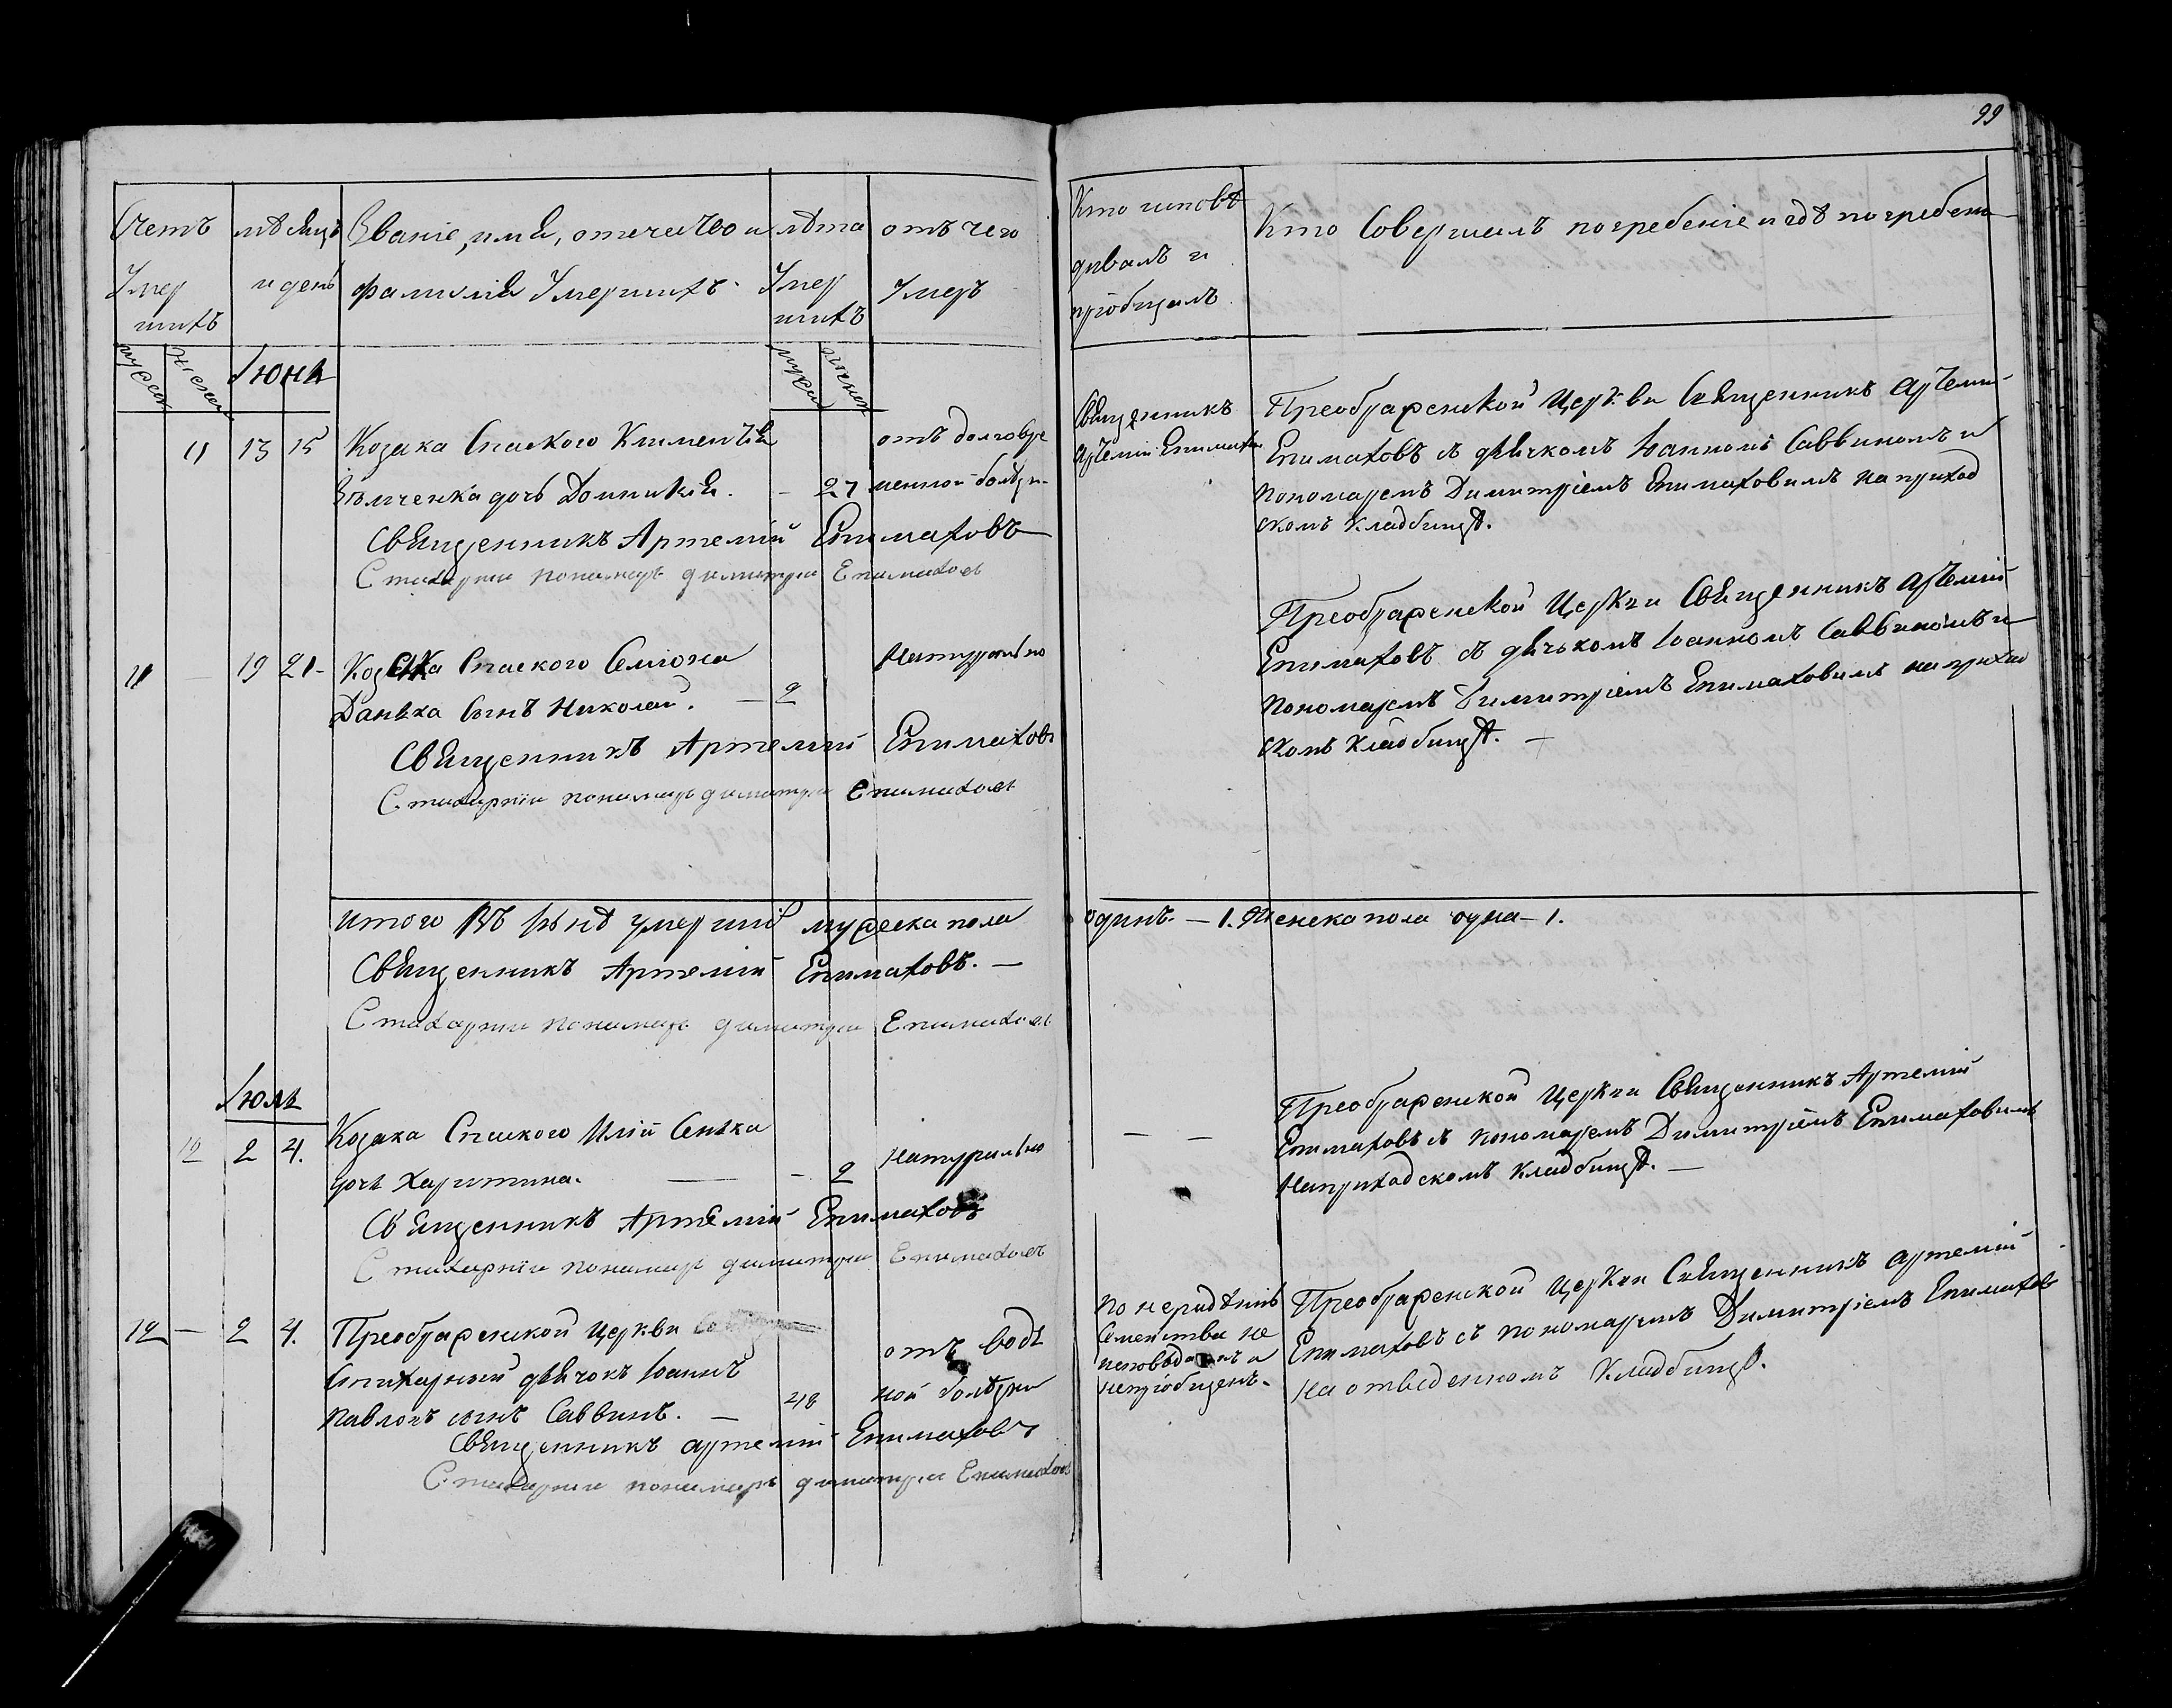 99
Счетъ
Умер
шихъ
мѣсяцъ
и день
Званіе, имя, отечество и
фамилія Умершихъ.
лѣта
Умер
шихъ
отъ чего
Умеръ
Кто исповѣ
дывалъ и
пріобщалъ
Кто Совершилъ погребеніе и гдѣ погребены
мужеск
женск
Іюнь
мужеск
женск
11 13 15 Козака Спаского Климентія
дочь Домникія. - 27
отъ долговре
менной болѣзн.
Священникъ
Артемій Епимаховъ
Преображенской Церкви Священникъ Артемій
Епимаховъ съ дьячкомъ Іоанномъ Саввинымъ и
пономаремъ Димитріемъ Епимаховымъ на приход
скомъ кладбищѣ.
Священникъ Артемій Епимаховъ
Стихарный пономарь димитрій Епимаховъ
11 — 19 21 - Козака Спаского Семіона
Данька Сынъ Николай. — 2
Натурально
Преображенской Церкви Священникъ Артемій
Епимаховъ съ дьячькомъ Іоанномъ Саввинымъ и
пономаремъ Димитріемъ Епимаховымъ на приход
скомъ кладбищѣ. —
Священникъ Артемій Епимаховъ
Стихарній пономарь димитрій Епимаховъ
итого въ Іюнѣ умерший мужеска пола
одинъ. — 1. Женска пола одна — 1.
Священникъ Артемій Епимаховъ. —
Стихарній пономарь димитрій Епимаховъ
Іюль
12 2 4. Козака Спаского Иліи Сенька
дочь Харитина. — - 2
Натурально
— —
Преображенской Церкви Священникъ Артемій
Епимаховъ съ пономаремъ Димитріемъ Епимаховымъ
на приходскомъ кладбищѣ. —
Священникъ Артемій Епимаховъ
Стихарній пономарь димитрій Епимаховъ
12 — 2 4. Преображенской Церкви
Стихарный дьячокъ Іоаннъ
Павловъ сынъ Саввинъ. — 48
отъ водя
ной болѣзни
по нерадѣнію
Семейства не
исповѣданъ и
непріобщенъ.
Преображенской Церкви Священникъ артемій
Епимаховъ съ пономаремъ Димитріемъ Епимахов
на отведенномъ Кладбищѣ.
Священникъ артемій Епимаховъ
Стихарній пономарь димитрій Епимаховъ